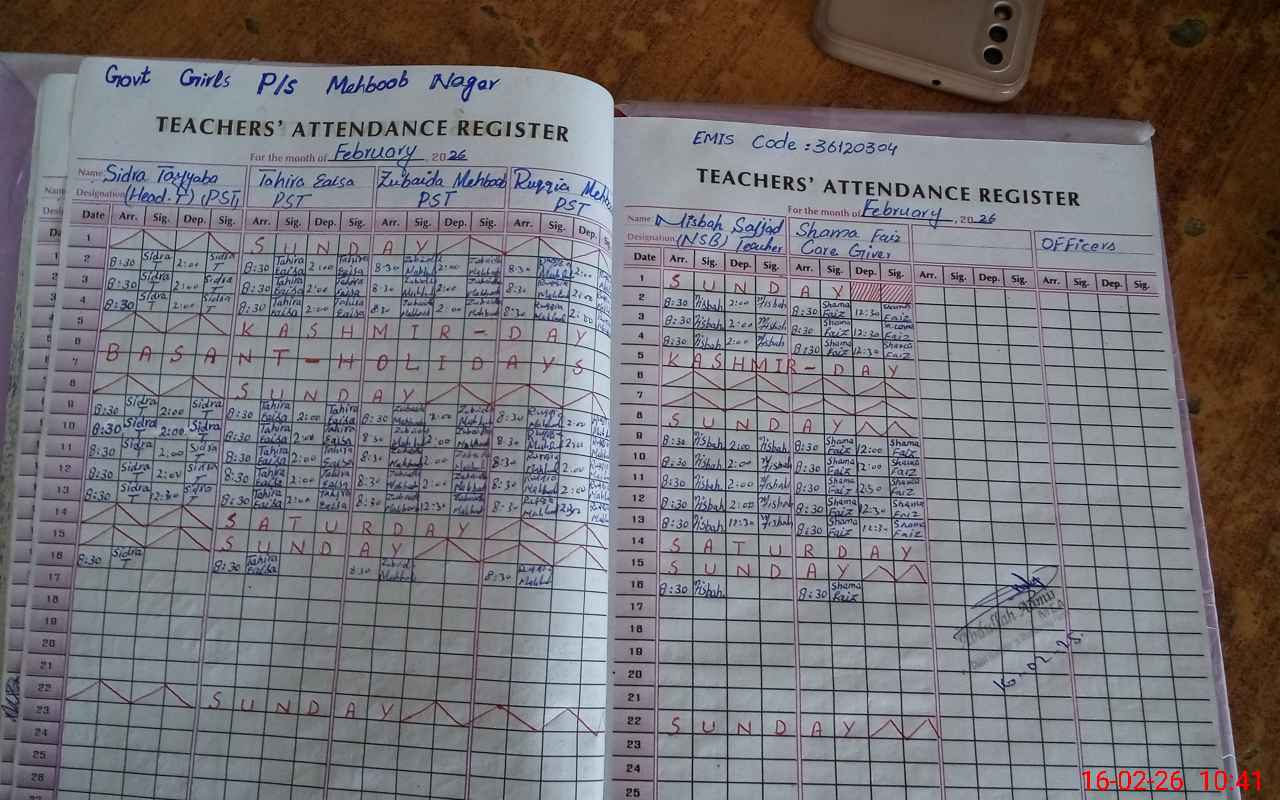 Govt Girls P/s Mehboob Nagar
TEACHERS' ATTENDANCE REGISTER
For the month of February, 2026
Name Sidra Tayyaba Tahira Eaisa Zubaida Mehboob Ruqqia
Designation (Head.T) (PST) PST PST PST
Date Arr. Sig. Dep. Sig. Arr. Sig. Dep. Sig. Arr. Sig. Dep. Sig. Arr. Sig. Dep. Sig.
1 SUNDAY
2 8:30 Sidra T 2:00 Sidra T 8:30 Tahira Eaisa 2:00 Tahira Eaisa 8:30 2:00 8:30 2:00
3 8:30 Sidra T 2:00 Sidra T 8:30 Tahira Eaisa 2:00 Tahira Eaisa 8:30 2:00 8:30 2:00
4 8:30 Sidra T 2:00 Sidra T 8:30 Tahira Eaisa 2:00 Tahira Eaisa 8:30 2:00 8:30 2:00
5 KASHMIR - DAY
6
7 BASANT - HOLIDAYS
8 SUNDAY
9 8:30 Sidra T 2:00 Sidra T 8:30 Tahira Eaisa 2:00 Tahira Eaisa 8:30 2:00 8:30 2:00
10 8:30 Sidra T 2:00 Sidra T 8:30 Tahira Eaisa 2:00 Tahira Eaisa 8:30 2:00 8:30 2:00
11 8:30 Sidra T 2:00 Sidra T 8:30 Tahira Eaisa 2:00 Tahira Eaisa 8:30 2:00 8:30 2:00
12 8:30 Sidra T 2:00 Sidra T 8:30 Tahira Eaisa 2:00 Tahira Eaisa 8:30 2:00 8:30 2:00
13 8:30 Sidra T 12:30 Sidra T 8:30 Tahira Eaisa 2:00 Tahira Eaisa 8:30 12:30 8:30
14 SATURDAY
15 SUNDAY
16 8:30 Sidra T 8:30 Tahira Eaisa 8:30 8:30
17
18
19
20
21
22 SUNDAY
23
24
25
26
EMIS Code : 36120304
TEACHERS' ATTENDANCE REGISTER
For the month of February, 2026
Name Misbah Sajjad Shama Faiz
Designation (NSB) Teacher Care Giver Officers
Date Arr. Sig. Dep. Sig. Arr. Sig. Dep. Sig. Arr. Sig. Dep. Sig. Arr. Sig. Dep. Sig.
1 SUNDAY
2 8:30 Misbah 2:00 Misbah 8:30 Shama Faiz 12:30 Shama Faiz
3 8:30 Misbah 2:00 Misbah 8:30 Shama Faiz 12:30 Shama Faiz
4 8:30 Misbah 2:00 Misbah 8:30 Shama Faiz 12:30 Shama Faiz
5 KASHMIR - DAY
6
7
8 SUNDAY
9 8:30 Misbah 2:00 Misbah 8:30 Shama Faiz 12:00 Shama Faiz
10 8:30 Misbah 2:00 Misbah 8:30 Shama Faiz 12:00 Shama Faiz
11 8:30 Misbah 2:00 Misbah 8:30 Shama Faiz Shama Faiz
12 8:30 Misbah 2:00 Misbah 8:30 Shama Faiz 12:30 Shama Faiz
13 8:30 Misbah 12:30 Misbah 8:30 Shama Faiz 12:30 Shama Faiz
14 SATURDAY
15 SUNDAY
16 8:30 Misbah 8:30 Shama Faiz
17
18
19
20
21
22 SUNDAY
23
24
25
16-02-26 10:41